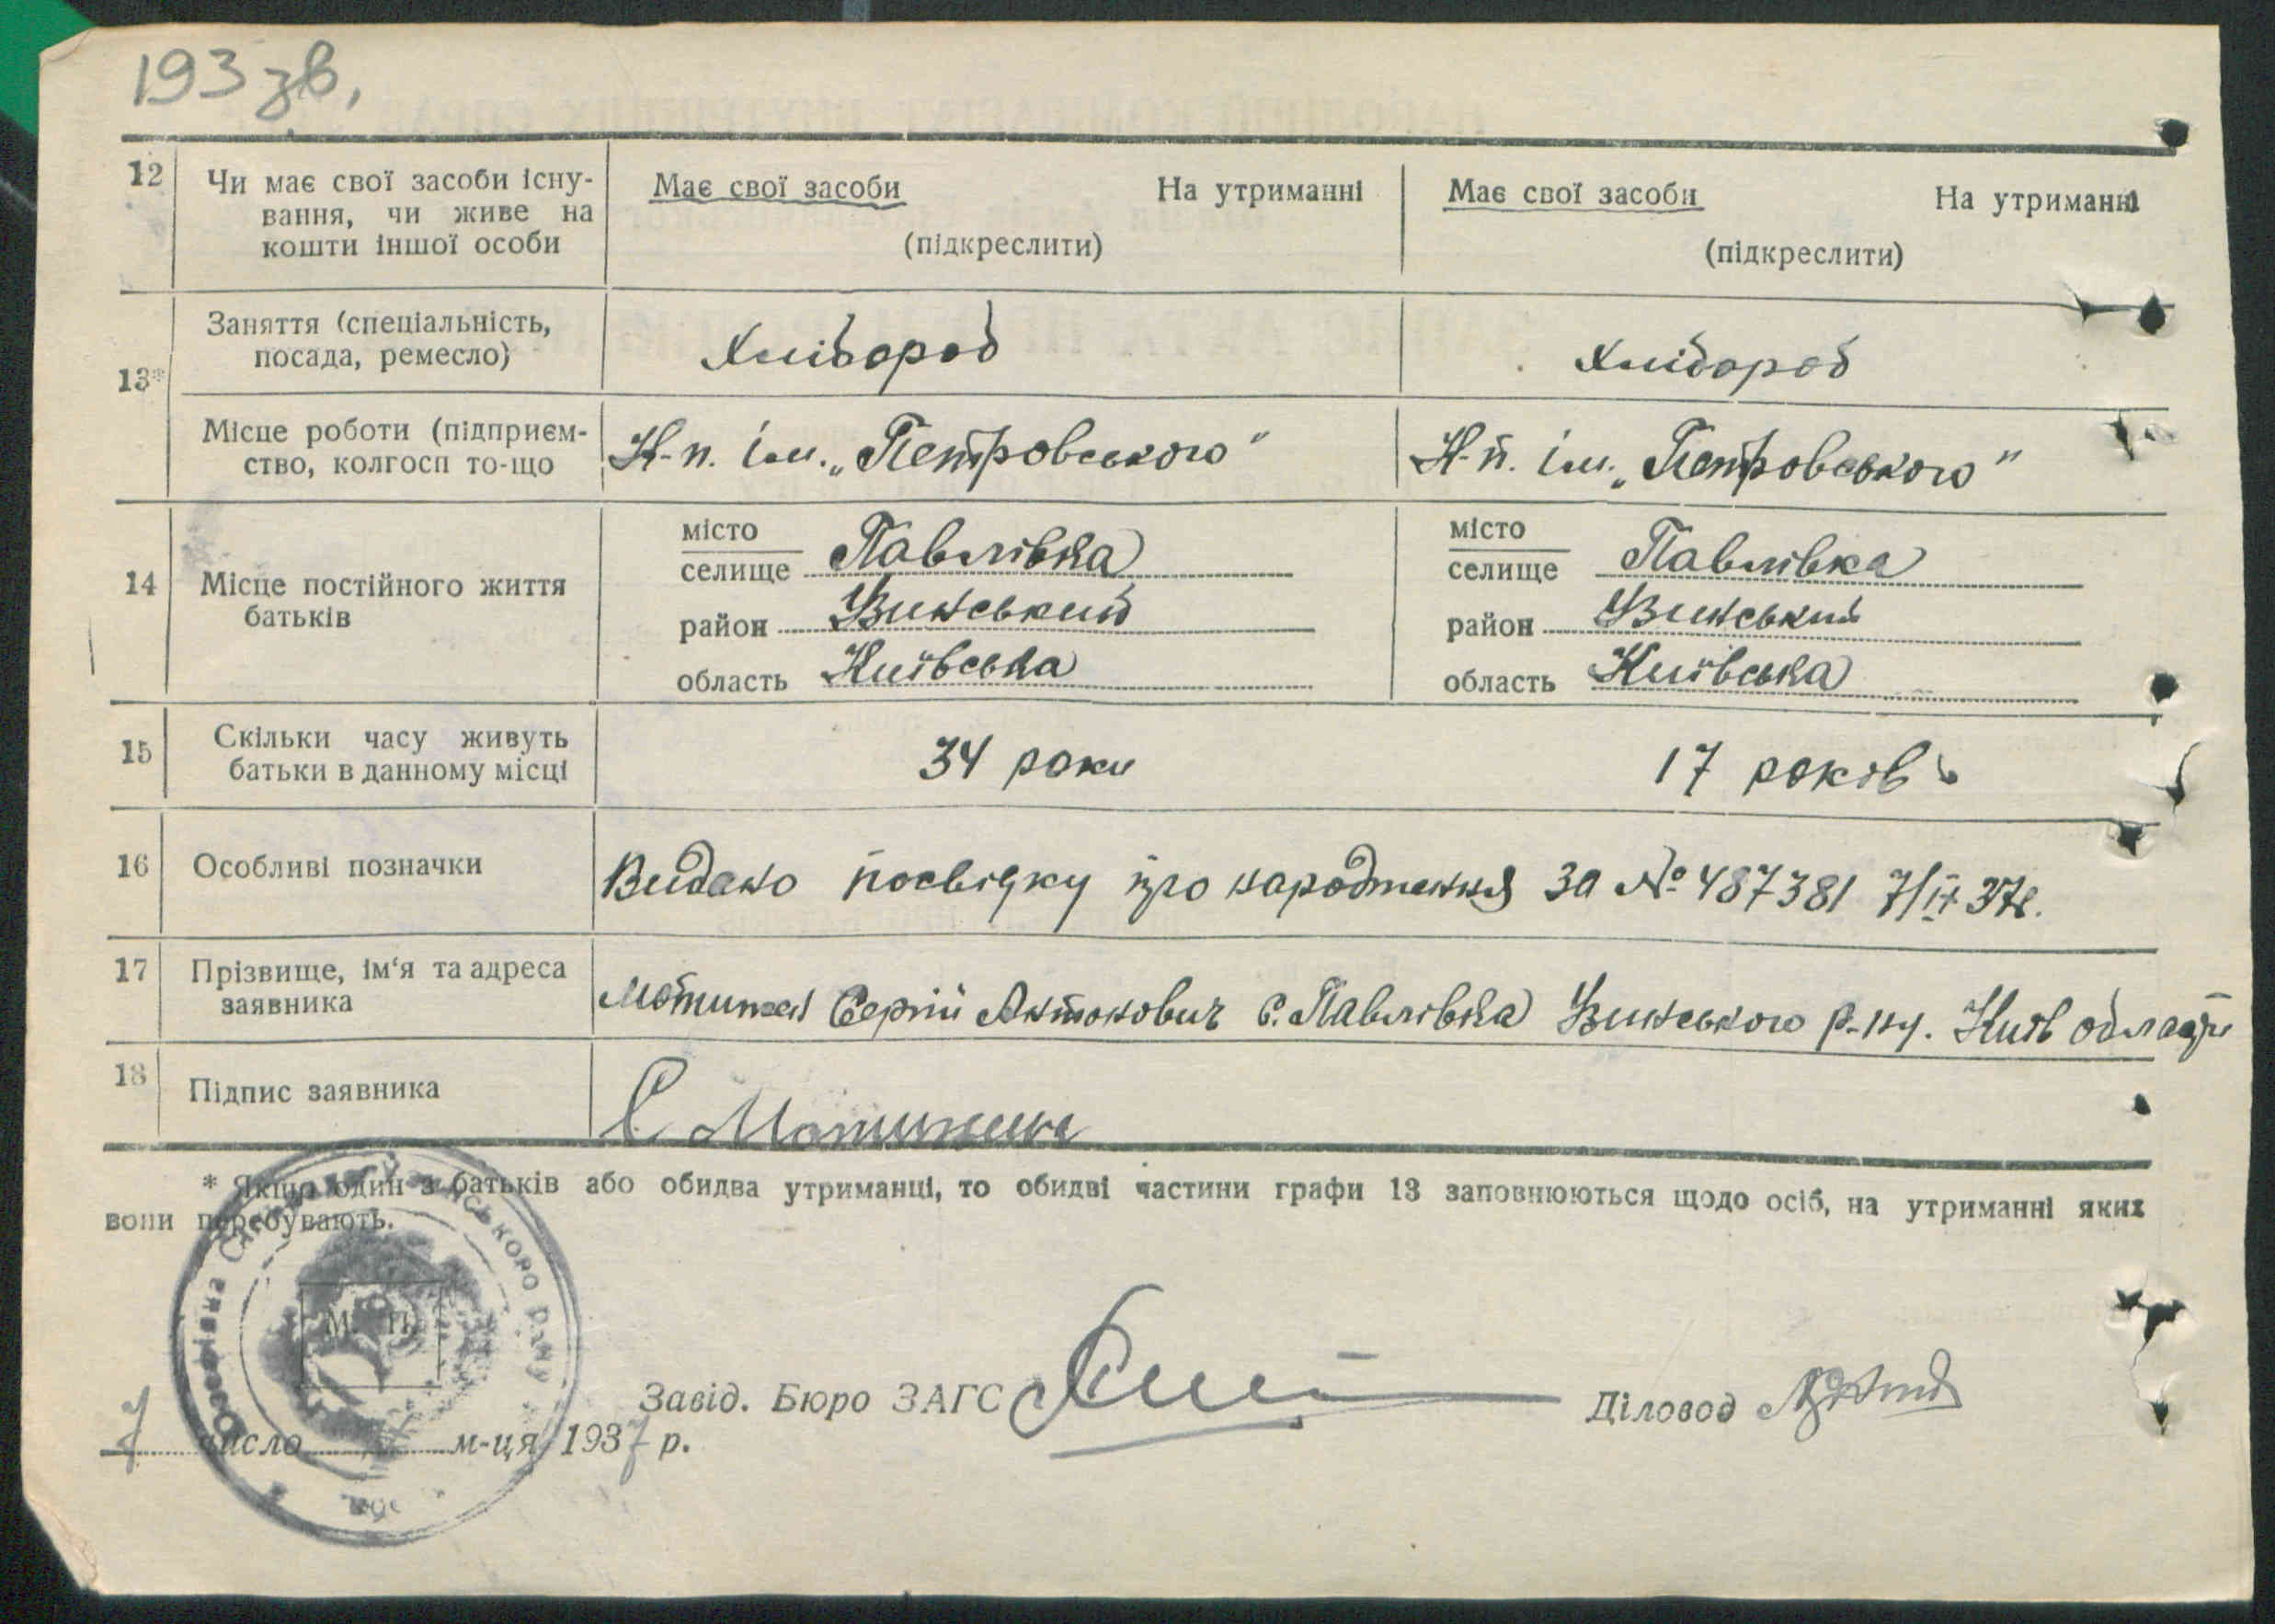 193 зв,
12 Чи має свої засоби існу- Має свої засоби На утриманні Має свої засоби На утриманні
вання, чи живе на
кошти іншої особи (підкреслити) (підкреслити)
Заняття (спеціальність,
посада, ремесло) Хлібороб Хлібороб
13*
Місце роботи (підприєм- К-п. ім. „Петровського" К-п. ім. „Петровського"
ство, колгосп то-що
місто місто
селище Павлівка селище Павлівка
14 Місце постійного життя
батьків
район Узинський район Узинський
область Київська область Київська
15 Скільки часу живуть
батьки в данному місці 34 роки 17 років
16 Особливі позначки Видано посвідку про народження за № 487381 7/ІХ 37р.
17 Прізвище, ім'я та адреса
заявника Сергій Антонович с. Павлівка Узинського р-ну. Київ області
18 Підпис заявника С
* Якщо один з батьків або обидва утриманці, то обидві частини графи 13 заповнюються щодо осіб, на утриманні яких
вони перебувають.
М. П.
Завід. Бюро ЗАГС Діловод
7 число м-ця 1937 р.